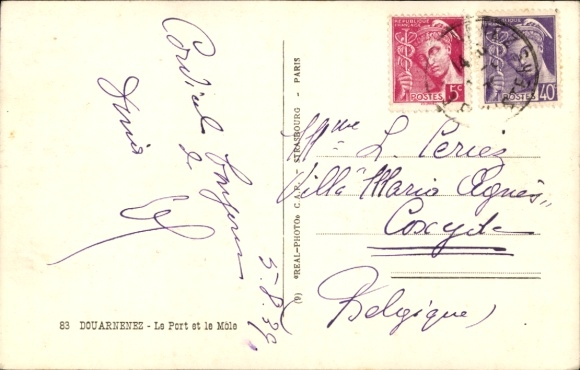 Cordial bonjour
de
5.8.39.
83 DOUARNENEZ - Le Port et le Môle
(9) "REAL-PHOTO" C.A.P. - STRASBOURG - PARIS
REPUBLIQUE FRANÇAISE
POSTES 5c
REPUBLIQUE FRANÇAISE
POSTES 40c
Mme L. Periez
Villa "Maria Agnès"
Coxyde
(Belgique)